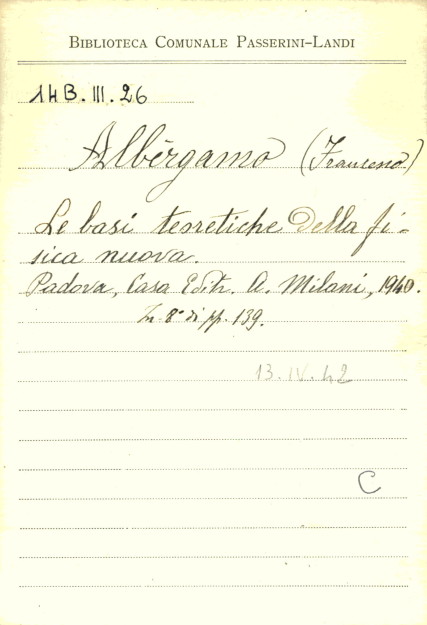 BIBLIOTECA COMUNALE PASSERINI-LANDI
14B.III.26
Albèrgamo (Francesco)
Le basi teoretiche della fi-
sica nuova.
Padova, Casa Editr. A. Milani, 1940.
In 8° di pp. 139.
13.IV.42
C